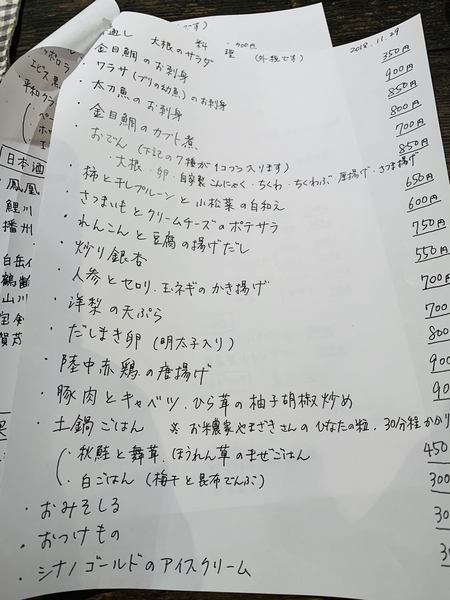 料理 (外税です) 2018.11.29
大根のサラダ 350円
金目鯛のお刺身 900円
ワラサ(ブリの幼魚)のお刺身 850円
太刀魚のお刺身 800円
金目鯛のカブト煮 700円
おでん(下記の7種が1コづつ入ります) 850円
大根・卵・自家製こんにゃく・ちくわ・ちくわぶ・唐揚げ・さつま揚げ
柿と干しプルーンと小松菜の白和え 650円
さつまいもとクリームチーズのポテサラ 600円
れんこんと豆腐の揚げだし 750円
炒り銀杏 550円
人参とセロリ、玉ネギのかき揚げ 700円
洋梨の天ぷら 700
だしまき卵(明太子入り) 800
陸中赤鶏の唐揚げ 900
豚肉とキャベツ、ひら茸の柚子胡椒炒め 90
土鍋ごはん ※お米農家やまざきさんのひなたの粒、30分程かかり
秋鮭と舞茸、ほうれん草のまぜごはん 450
白ごはん(梅干と昆布でんぶ) 300
おみそしる 30
おつけもの 30
シナノゴールドのアイスクリーム 3
エビス
平和クラ
日本酒
鳳凰
鯉川
播州
白岳
鶴齢
山川
賀茂